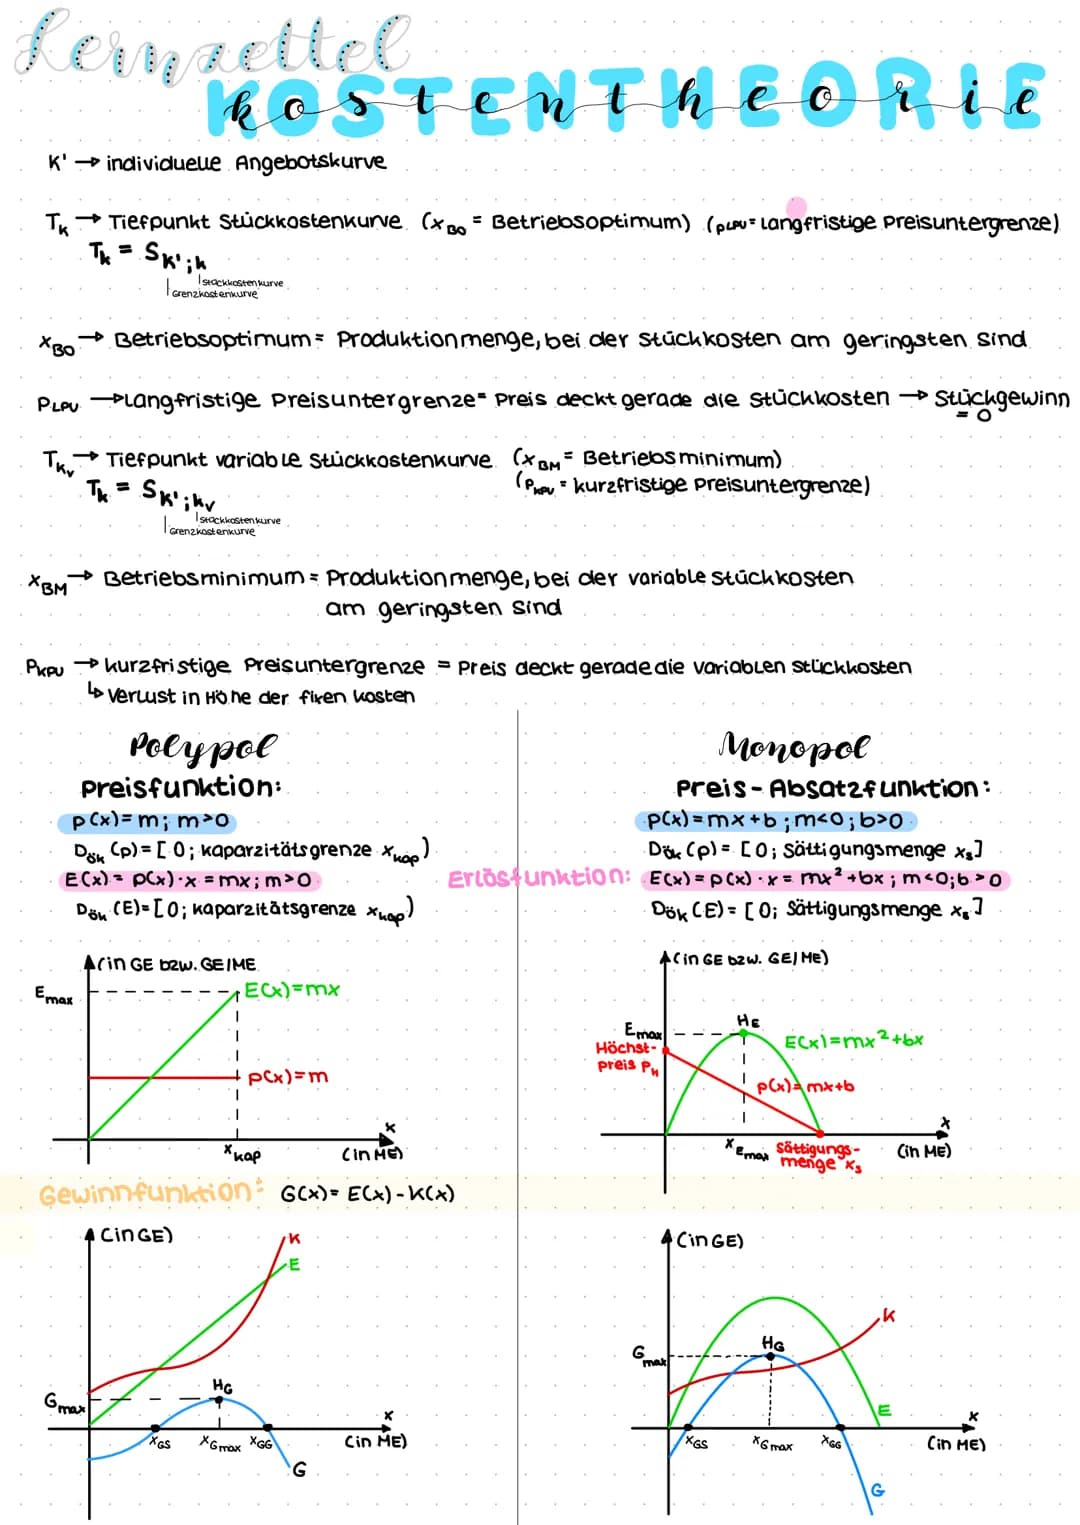 Lernzettel
kostentheorie
K' → individuelle Angebotskurve
Tk → Tiefpunkt Stückkostenkurve (xBO = Betriebsoptimum) (pLPU = langfristige Preisuntergrenze)
Tk = SK';k
Stückkostenkurve
Grenzkostenkurve
xBO → Betriebsoptimum = Produktionmenge, bei der Stückkosten am geringsten sind
PLPU → Langfristige Preisuntergrenze = Preis deckt gerade die Stückkosten → Stückgewinn
= 0
Tkv → Tiefpunkt variable Stückkostenkurve (xBM = Betriebsminimum)
(PKPU = kurzfristige Preisuntergrenze)
Tk = SK';kv
Stückkostenkurve
Grenzkostenkurve
xBM → Betriebsminimum = Produktionmenge, bei der variable Stückkosten
am geringsten sind
PKPU → kurzfristige Preisuntergrenze = Preis deckt gerade die variablen Stückkosten
↳ Verlust in Höhe der fixen kosten
Polypol
Preisfunktion:
p(x)=m; m>0
Dök (p)=[0; kaparzitätsgrenze xkap)
E(x)= p(x)·x = mx; m>0
Dök (E)=[0; kaparzitätsgrenze xkap)
Monopol
Preis-Absatzfunktion:
p(x)=mx+b; m<0; b>0
Dök (p)= [0; Sättigungsmenge xs]
Erlösfunktion: E(x)=p(x)·x= mx²+bx; m<0; b>0
Dök (E)= [0; Sättigungsmenge xs]
(in GE bzw. GE/ME
Emax
E(x)=mx
p(x)=m
x
xkap
(in ME)
(in GE bzw. GE/ME)
HE
Emax
Höchst-
preis PH
E(x)=mx²+bx
p(x)=mx+b
x
xEmax
Sättigungs-
menge xs
(in ME)
Gewinnfunktion: G(x)= E(x)-K(x)
(in GE)
K
E
HG
Gmax
x
xGS
xGmax
xGG
(in ME)
G
(in GE)
K
HG
Gmax
E
x
xGS
xGmax
xGG
(in ME)
G